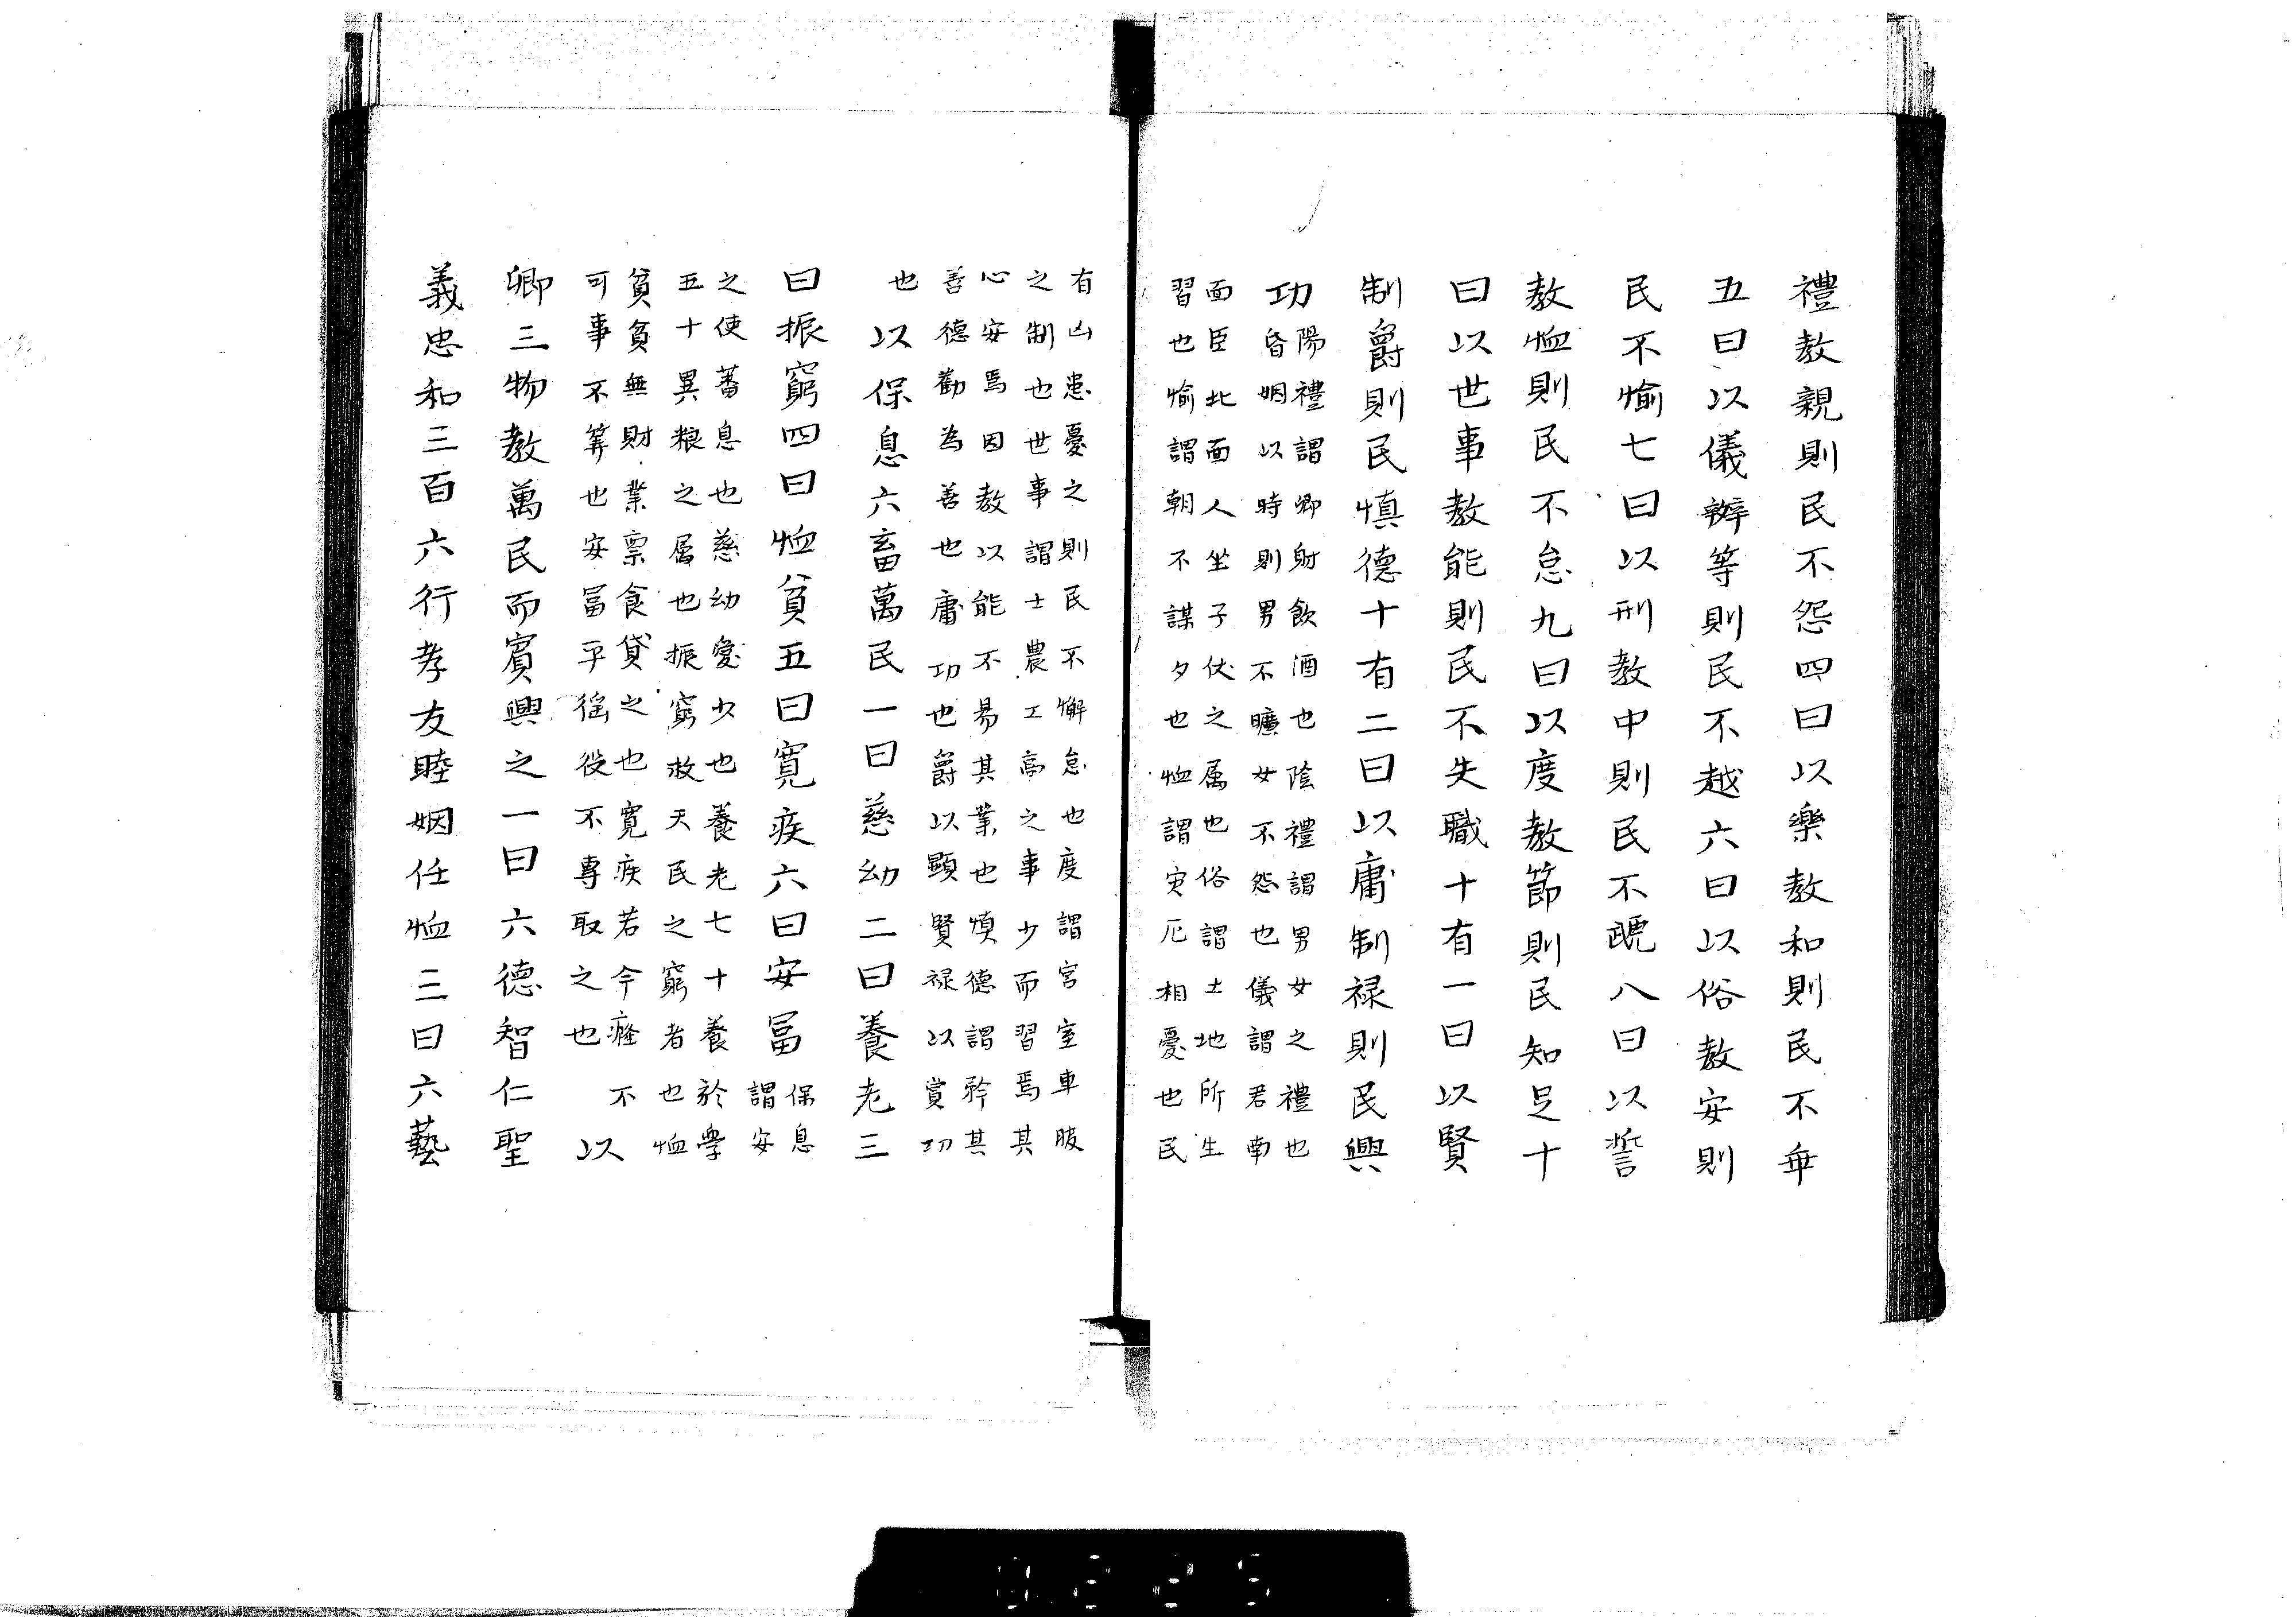 禮教親則民不怨四曰以樂教和則民不乖
五曰以儀辨等則民不越六曰以俗教安則
民不愉七曰以刑教中則民不虣八曰以誓
教恤則民不怠九曰以度教節則民知足十
曰以世事教能則民不失職十有一曰以賢
制爵則民慎德十有二曰以庸制禄則民興
功
陽禮謂卿射飲酒也陰禮謂男女之禮也
昏姻以時則男不曠女不怨也儀謂君南
面臣北面人坐子伏之属也俗謂土地所生
習也愉謂朝不謀夕也恤謂灾厄相憂也民
有凶患憂之則民不懈怠也度謂宮室車服
之制也世事謂士農工商之事少而習焉其
心安焉因教以能不易其業也慎德謂矜其
善德勸為善也庸功也爵以顯賢禄以賞功
也
以保息六畜萬民一曰慈幼二曰養老三
曰振窮四曰恤貧五曰寬疾六曰安冨
保息
謂安
之使蕃息也慈幼愛少也養老七十養於學
五十異粮之属也振窮救天民之窮者也恤
貧貧無財業稟食貸之也寛疾若今癃不
可事不筭也安冨平徭役不專取之也
以
卿三物教萬民而賓興之一曰六德智仁聖
義忠和三百六行孝友睦姻任恤三曰六藝